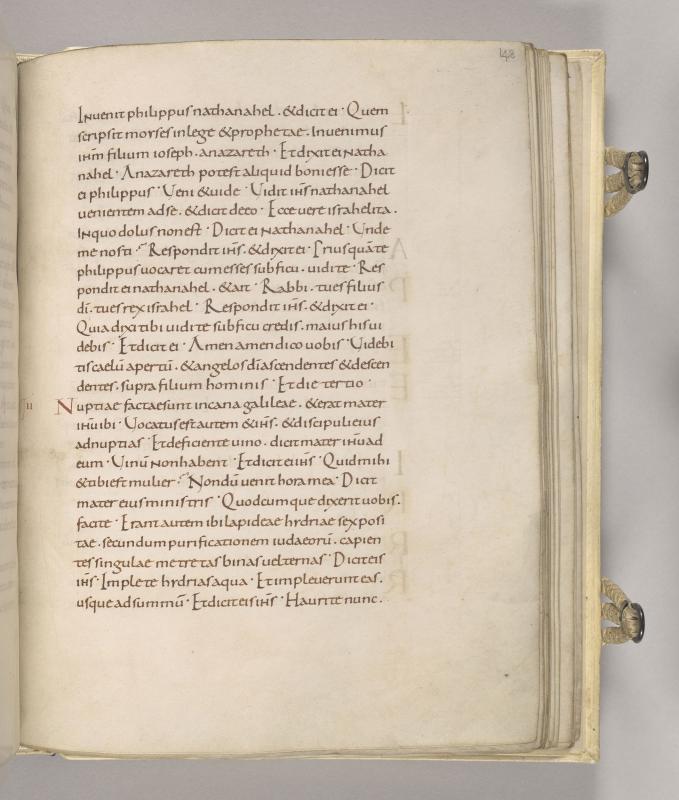 148
Invenit philippus nathanahel . & dicit ei · Quem
scripsit moyses in lege & prophetae . Invenimus
ihm filium ioseph . a nazareth · Et dixit ei Natha
nahel · A nazareth potest aliquid boni esse · Dicit
ei philippus · Veni & vide · Vidit ihs nathanahel
venientem ad se . & dicit de eo · Ecce vere israhelita .
in quo dolus non est · Dicit ei Nathanahel · Unde
me nosti · Respondit ihs . & dixit ei · Priusquā te
philippus vocaret cum esses sub ficu . vidi te · Res
pondit ei nathanahel . & ait · Rabbi . tu es filius
dī . tu es rex israhel · Respondit ihs . & dixit ei ·
Quia dixi tibi vidi te sub ficu credis . maius his vi
debis · Et dicit ei · Amen amen dico vobis · Videbi
tis caelū apertū . & angelos dī ascendentes & descen
dentes . supra filium hominis · Et die tertio ·
II Nuptiae factae sunt in cana galileae . & erat mater
ihu ibi · Vocatus est autem & ihs . & discipuli eius
ad nuptias · Et deficiente vino . dicit mater ihu ad
eum · Vinū non habent · Et dicit ei ihs · Quid mihi
& tibi est mulier · Nondū venit hora mea · Dicit
mater eius ministris · Quodcumque dixerit vobis .
facite · Erant autem ibi lapideae hydriae sex posi
tae . secundum purificationem iudaeorū . capien
tes singulae metretas binas vel ternas · Dicit eis
ihs · Implete hydrias aqua · Et impleverunt eas .
usque ad summū · Et dicit eis ihs · Haurite nunc .